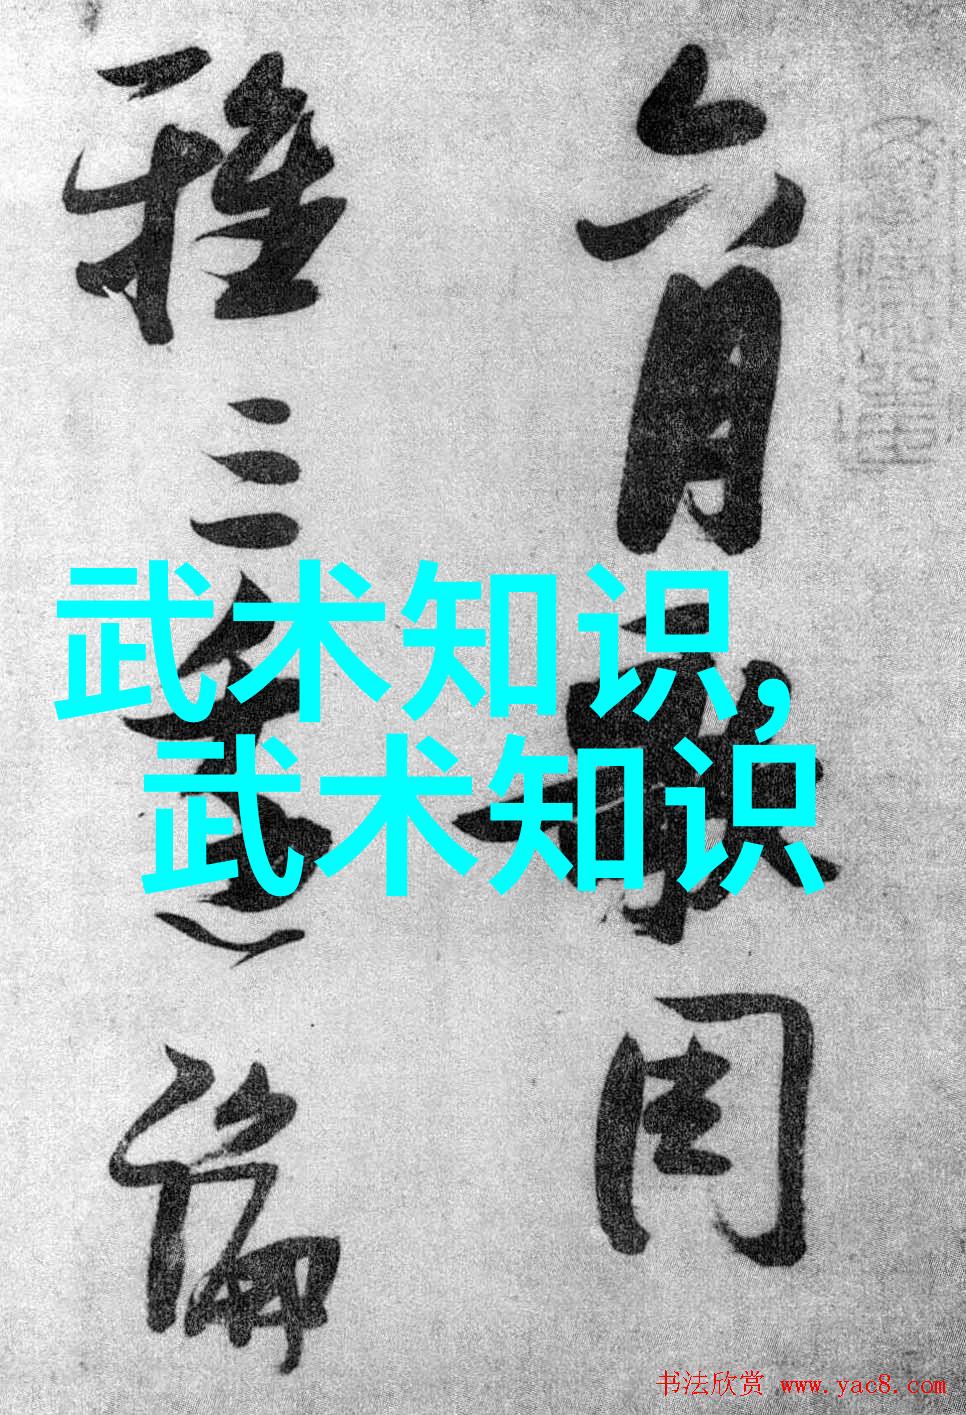 六月周
雅三論
武术知识,
武术知识
书法欣赏 www.yac8.com